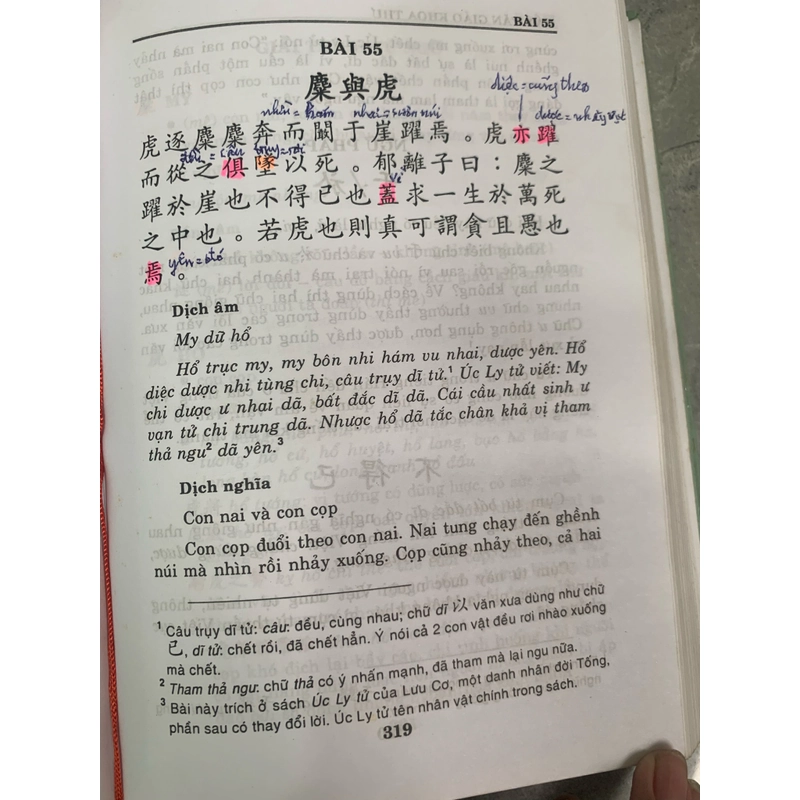 BÀI 55
BÀI 55
麋與虎
diệc = cũng theo
nhìn = hám nhai = sườn núi
dược = nhảy vọt
虎逐麋麋奔而闞于崖躍焉。虎亦躍
而從之俱墜以死。郁離子曰：麋之
vì
躍於崖也不得已也蓋求一生於萬死
之中也。若虎也則真可謂貪且愚也
焉。
Dịch âm
My dữ hổ
Hổ trục my, my bôn nhi hám vu nhai, dược yên. Hổ
diệc dược nhi tùng chi, câu trụy dĩ tử.¹ Úc Ly tử viết: My
chi dược ư nhai dã, bất đắc dĩ dã. Cái cầu nhất sinh ư
vạn tử chi trung dã. Nhược hổ dã tắc chân khả vị tham
thả ngu² dã yên.³
Dịch nghĩa
Con nai và con cọp
Con cọp đuổi theo con nai. Nai tung chạy đến ghềnh
núi mà nhìn rồi nhảy xuống. Cọp cũng nhảy theo, cả hai
¹ Câu trụy dĩ tử: câu: đều, cùng nhau; chữ dĩ 以 văn xưa dùng như chữ
已, dĩ tử: chết rồi, đã chết hẳn. Ý nói cả 2 con vật đều rơi nhào xuống
mà chết.
² Tham thả ngu: chữ thả có ý nhấn mạnh, đã tham mà lại ngu nữa.
³ Bài này trích ở sách Úc Ly tử của Lưu Cơ, một danh nhân đời Tống,
phần sau có thay đổi lời. Úc Ly tử tên nhân vật chính trong sách.
319